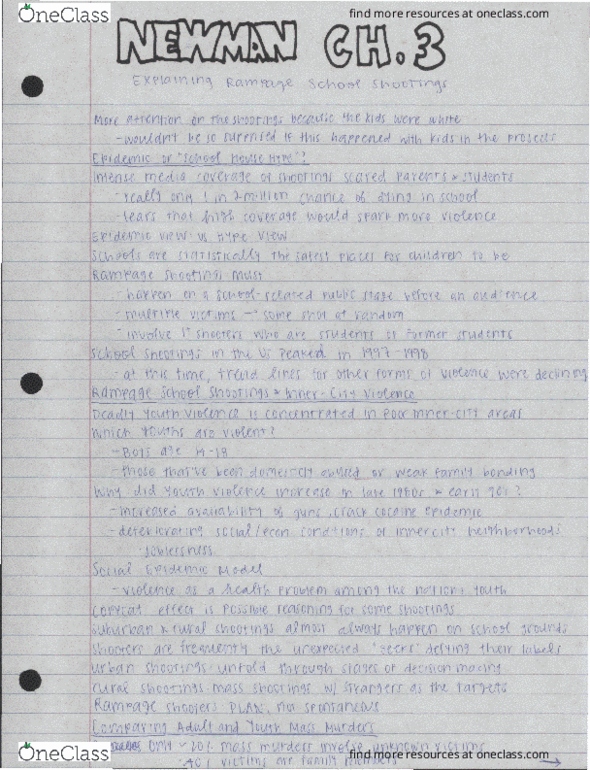 OneClass
find more resources at oneclass.com
find more resources at oneclass.com
NEWMAN CH. 3
Explaining Rampage School Shootings
More attention on the shootings because the kids were white
-wouldn't be so surprised if this happened with kids in the projects
Epidemic or "School House Hype"?
Intense media coverage of shootings scared parents & students
-really only 1 in 2 million chance of dying in school
-fears that high coverage would spark more violence
Epidemic view vs. Hype view
Schools are statistically the safest places for children to be
Rampage Shootings Must
-happen on a school-related public stage before an audience
-multiple victims → some shot at random
-involve 1+ shooters who are students or former students
School Shootings in the US Peaked in 1997-1998
-at this time, trend lines for other forms of violence were declining
Rampage School Shootings & Inner-City Violence
Deadly youth violence is concentrated in poor inner-city areas
Which youths are violent?
-Boys age 14-18
-those that've been domestically abused or weak family bonding
Why did youth violence increase in late 1980s & early 90s?
-increased availability of guns, crack cocaine epidemic
-deteriorating social/econ conditions of inner city neighborhoods
-joblessness
Social Epidemic Model
-violence as a health problem among the nation's youth
Copycat effect is possible reasoning for some shootings
Suburban & rural shootings almost always happen on school grounds
Shooters are frequently the unexpected "geeks" defying their labels
urban shootings-unfold through stages of decision making
rural shootings-mass shootings w/ strangers as the targets
Rampage shooters PLAN, not spontaneous
Comparing Adult and Youth Mass Murders
only ~20% mass murders involve unknown victims
-40% victims are family members →
OneClass
find more resources at oneclass.com